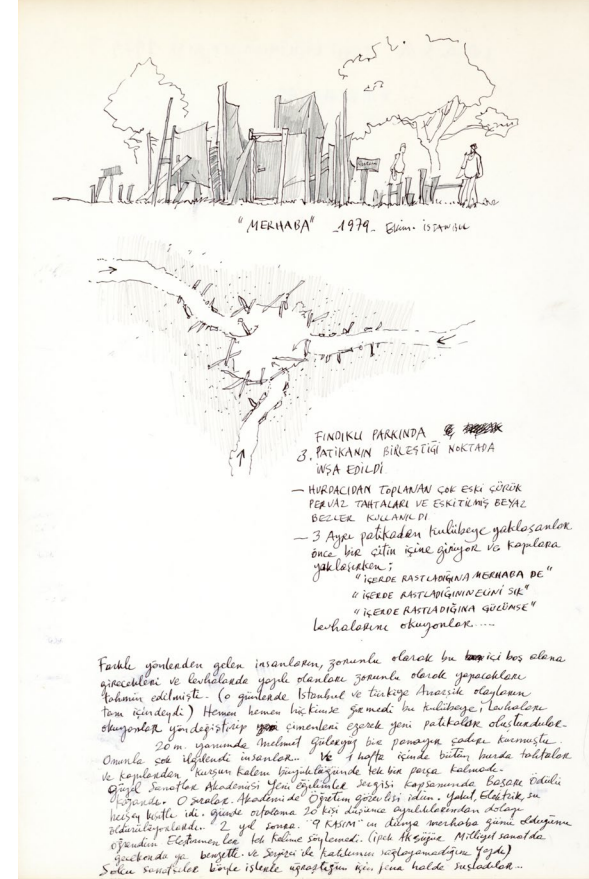 "MERHABA" _1979_ Ekim. İSTANBUL
FINDIKLI PARKINDA
3. PATİKANIN BİRLEŞTİĞİ NOKTADA
İNŞA EDİLDİ
— HURDACIDAN TOPLANAN ÇOK ESKİ ÇÜRÜK
PERVAZ TAHTALARI VE ESKİTİLMİŞ BEYAZ
BEZLER KULLANILDI
— 3 Ayrı patikadan kulübeye yaklaşanlar
önce bir çitin içine giriyor ve kapılara
yaklaşırken ;
"İÇERDE RASTLADIĞINA MERHABA DE"
"İÇERDE RASTLADIĞININ ELİNİ SIK"
"İÇERDE RASTLADIĞINA GÜLÜMSE"
levhalarını okuyorlar.....
Farklı yönlerden gelen insanların, zorunlu olarak bu içi boş alana
girecekleri ve levhalarda yazılı olanları zorunlu olarak yapacakları
tahmin edilmişti. (o günlerde İstanbul ve türkiye Anarşik olayların
tam içindeydi) Hemen hemen hiçkimse girmedi bu kulübeye, levhaları
okuyorlar yön değiştirip çimenleri ezerek yeni patikalar oluşturdular.
20 m. yanında Mehmet Güleryüz bir panayır çadırı kurmuştu.
Onunla çok ilgilendi insanlar.. Ve 1 hafta içinde bütün hurda tahtalar
ve kapılardan kurşun kalem büyüklüğünde tek bir parça kalmadı.
Güzel Sanatlar Akademisi Yeni Eğilimler sergisi kapsamında Başarı Ödülü
kazandı. O sıralar Akademi'de Öğretim görevlisi idim. Yakıt, Elektrik, su
herşey kısıtlı idi. günde ortalama 20 kişi düşünce ayrılıklarından dolayı
öldürülüyorlardı. 2 yıl sonra "9 KASIM" ın dünya merhaba günü olduğunu
öğrendim Eleştirmenler tek kelime söylemedi. (ipek Aksüğür Milliyet sanatda
gecekonduya benzetti. ve Seyirci ile katılımın sağlayamadığını yazdı)
Solcu sanatçılar böyle işlerle uğraştığım için fena halde suçladılar...